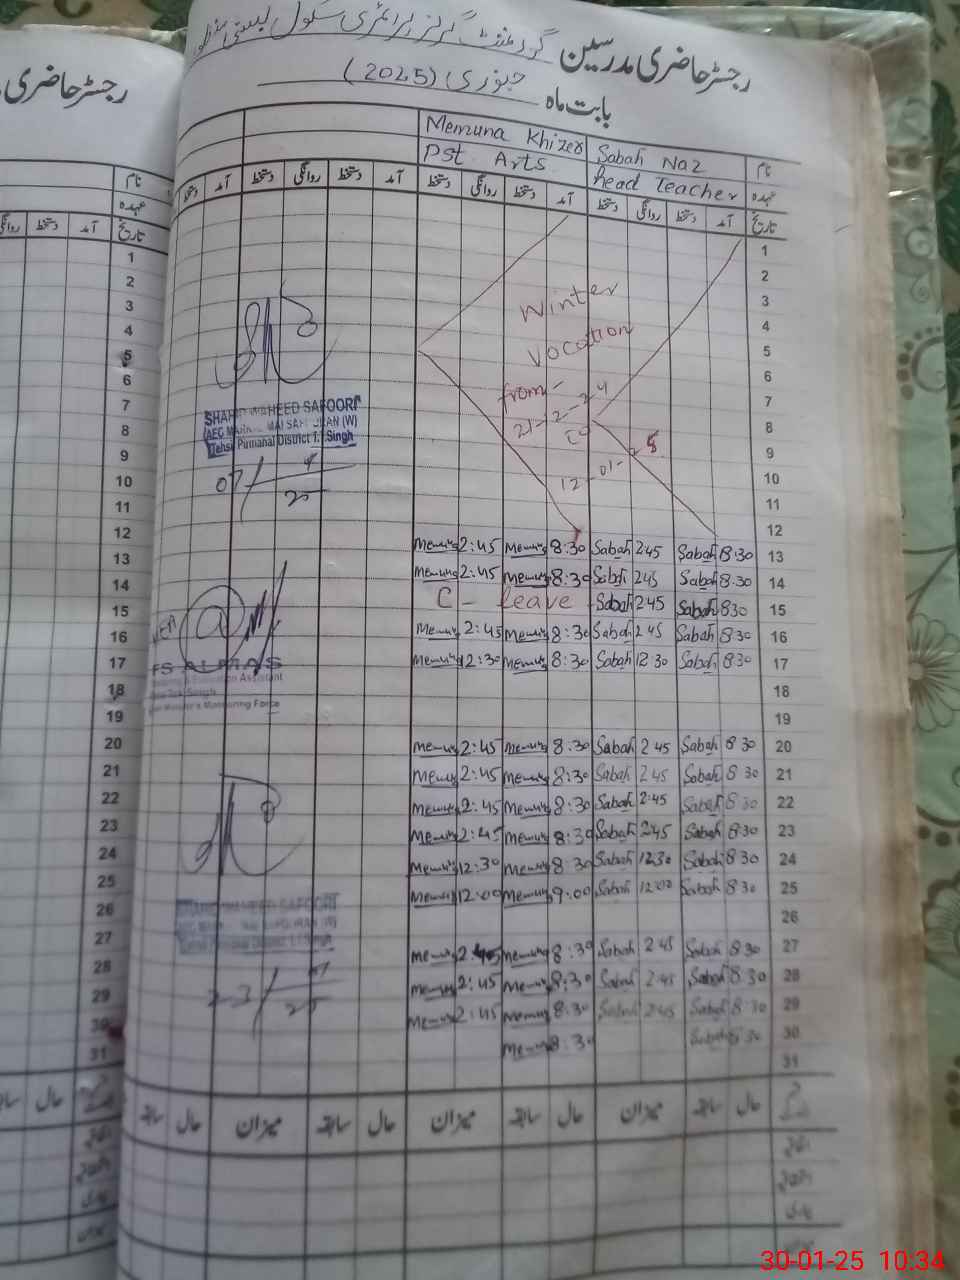 رجسٹر حاضری مدرسین گورنمنٹ گرلز پرائمری سکول بستی
بابت ماہ جنوری (2025)
نام Sabah Naz Memuna Khizer
عہدہ head Teacher Pst Arts
تاریخ آمد دستخط روانگی دستخط آمد دستخط روانگی دستخط آمد دستخط روانگی دستخط آمد دستخط
1
2
3 Winter
4
5 Vocation
6
7 from
8 21-12-24
9 to
10 12-01-25
11
12
13 8:30 Sabah 2:45 Sabah 8:30 Memuna 2:45 Memuna
14 8:30 Sabah 2:45 Sabah 8:30 Memuna 2:45 Memuna
15 8:30 Sabah 2:45 Sabah C - leave
16 8:30 Sabah 2:45 Sabah 8:30 Memuna 2:45 Memuna
17 8:30 Sabah 12:30 Sabah 8:30 Memuna 12:30 Memuna
18
19
20 8:30 Sabah 2:45 Sabah 8:30 Memuna 2:45 Memuna
21 8:30 Sabah 2:45 Sabah 8:30 Memuna 2:45 Memuna
22 8:30 Sabah 2:45 Sabah 8:30 Memuna 2:45 Memuna
23 8:30 Sabah 2:45 Sabah 8:30 Memuna 2:45 Memuna
24 8:30 Sabah 12:30 Sabah 8:30 Memuna 12:30 Memuna
25 8:30 Sabah 12:00 Sabah 9:00 Memuna 12:00 Memuna
26
27 8:30 Sabah 2:45 Sabah 8:30 Memuna 2:45 Memuna
28 8:30 Sabah 2:45 Sabah 8:30 Memuna 2:45 Memuna
29 8:30 Sabah 2:45 Sabah 8:30 Memuna 2:45 Memuna
30 8:30 Sabah 8:30 Memuna
31
حال سابقہ میزان حال سابقہ میزان حال سابقہ میزان حال سابقہ
اتفاقیہ
بیماری
SHAHID WAHEED SAFOORI
Tehsil Pirmahal District T.T.Singh
07/
25
ALMAS
Monitoring Force
SHAHID WAHEED SAFOORI
Tehsil Pirmahal District T.T.Singh
25
رجسٹر حاضری
نام
عہدہ
تاریخ آمد دستخط روانگی
1
2
3
4
5
6
7
8
9
10
11
12
13
14
15
16
17
18
19
20
21
22
23
24
25
26
27
28
29
30
31
حال
30-01-25 10:34